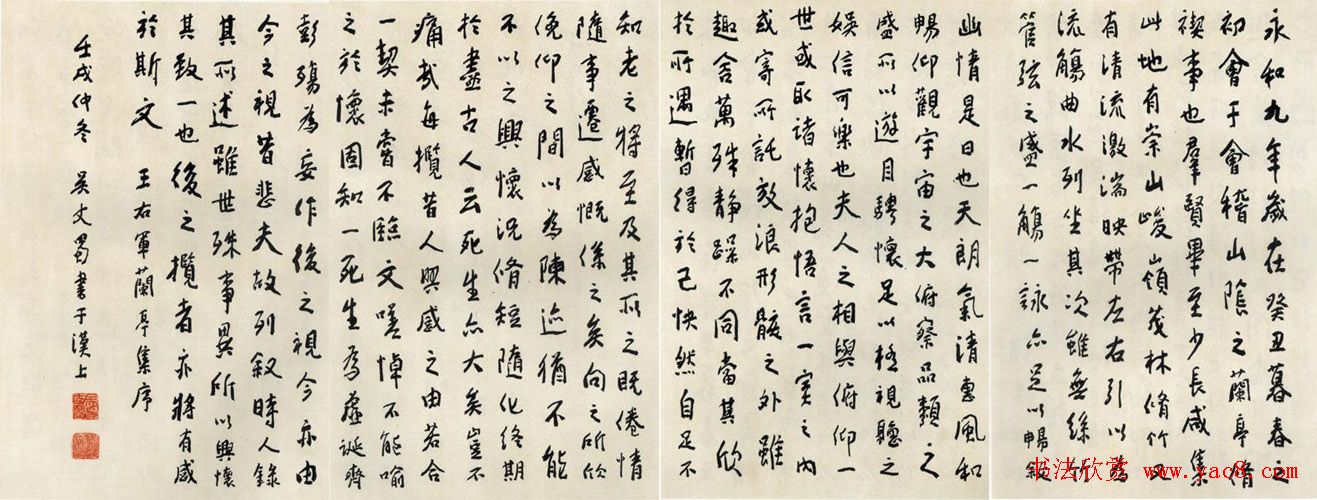 永和九年歲在癸丑暮春之
初會于會稽山陰之蘭亭脩
禊事也羣賢畢至少長咸集
此地有崇山峻嶺茂林脩竹又
有清流激湍映帶左右引以為
流觴曲水列坐其次雖無絲竹
管弦之盛一觴一詠亦足以暢敘
幽情是日也天朗氣清惠風和
暢仰觀宇宙之大俯察品類之
盛所以遊目騁懷足以極視聽之
娛信可樂也夫人之相與俯仰一
世或取諸懷抱悟言一室之內
或寄所託放浪形骸之外雖
趣舍萬殊靜躁不同當其欣
於所遇暫得於己怏然自足不
知老之將至及其所之既倦情
隨事遷感慨係之矣向之所欣
俛仰之間以為陳迹猶不能
不以之興懷況脩短隨化終期
於盡古人云死生亦大矣豈不
痛哉每攬昔人興感之由若合
一契未嘗不臨文嗟悼不能喻
之於懷固知一死生為虛誕齊
彭殤為妄作後之視今亦由
今之視昔悲夫故列敘時人錄
其所述雖世殊事異所以興懷
其致一也後之攬者亦將有感
於斯文 王右軍蘭亭集序
壬戌仲冬 吳丈蜀書于漢上
书法欣赏 www.yac8.com